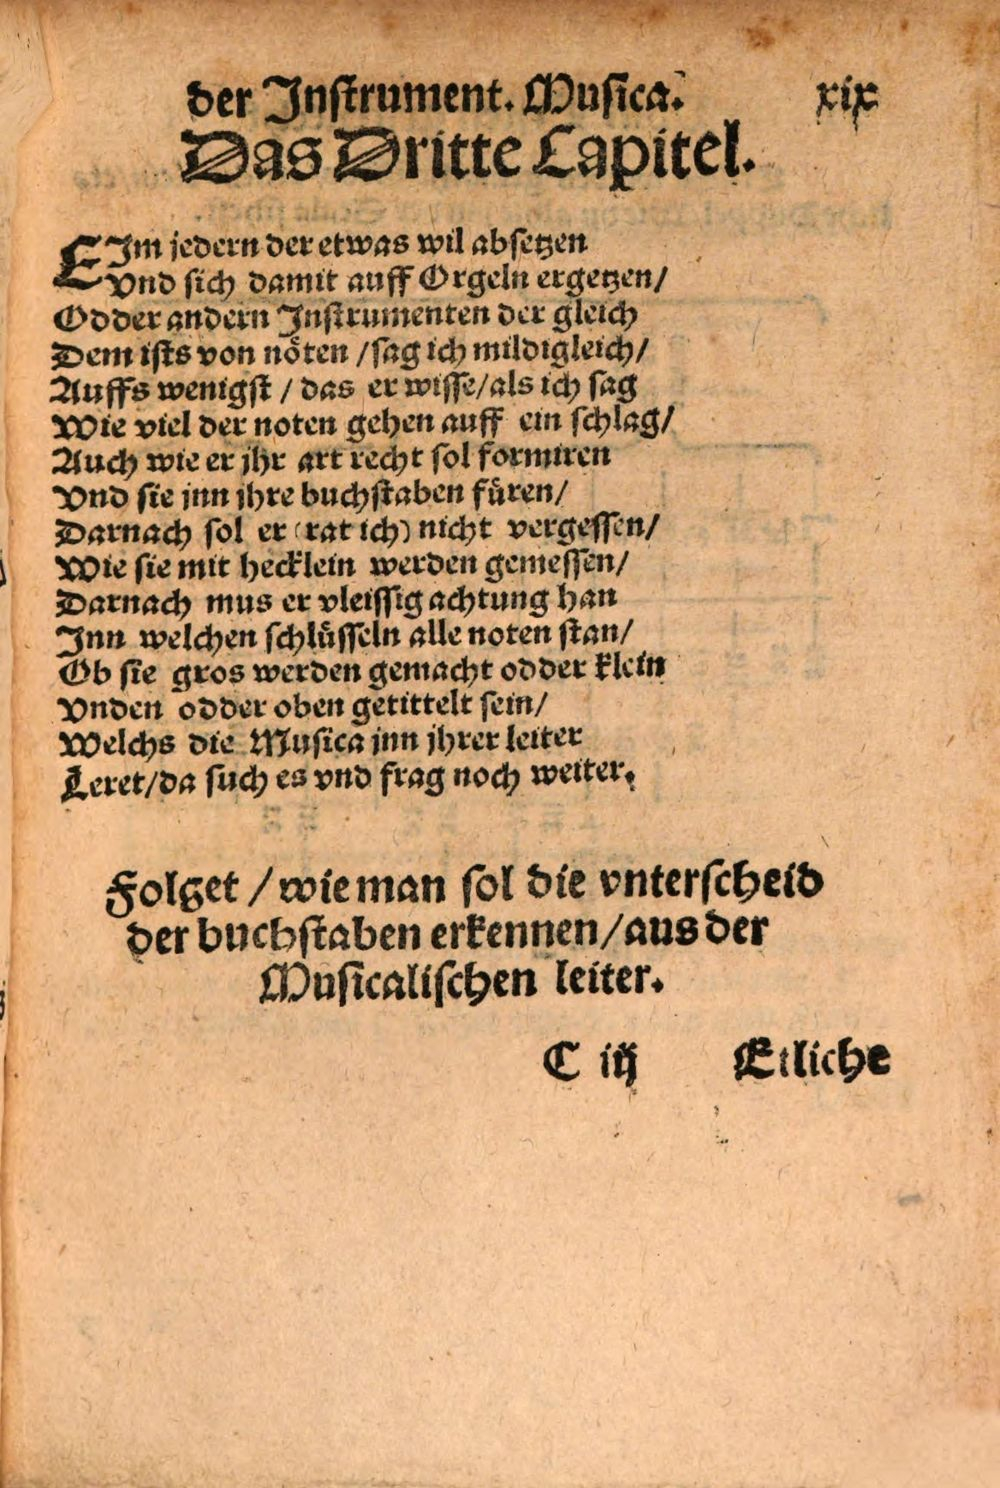 der Instrument. Musica. xix
Das Dritte Capitel.
EIm jedern der etwas wil absetzen
Vnd sich damit auff Orgeln ergetzen/
Odder andern Instrumenten der gleich
Dem ists von nöten /sag ich mildigleich/
Auffs wenigst / das er wisse/als ich sag
Wie viel der noten gehen auff ein schlag/
Auch wie er jhr art recht sol formiren
Vnd sie jnn jhre buchstaben füren/
Darnach sol er (rat ich) nicht vergessen/
Wie sie mit hecklein werden gemessen/
Darnach mus er vleissig achtung han
Inn welchen schlüsseln alle noten stan/
Ob sie gros werden gemacht odder klein
Vnden odder oben getittelt sein/
Welchs die Musica jnn jhrer leiter
Leret/da such es vnd frag noch weiter.
Folget / wie man sol die vnterscheid
der buchstaben erkennen/aus der
Musicalischen leiter.
C iij Etliche